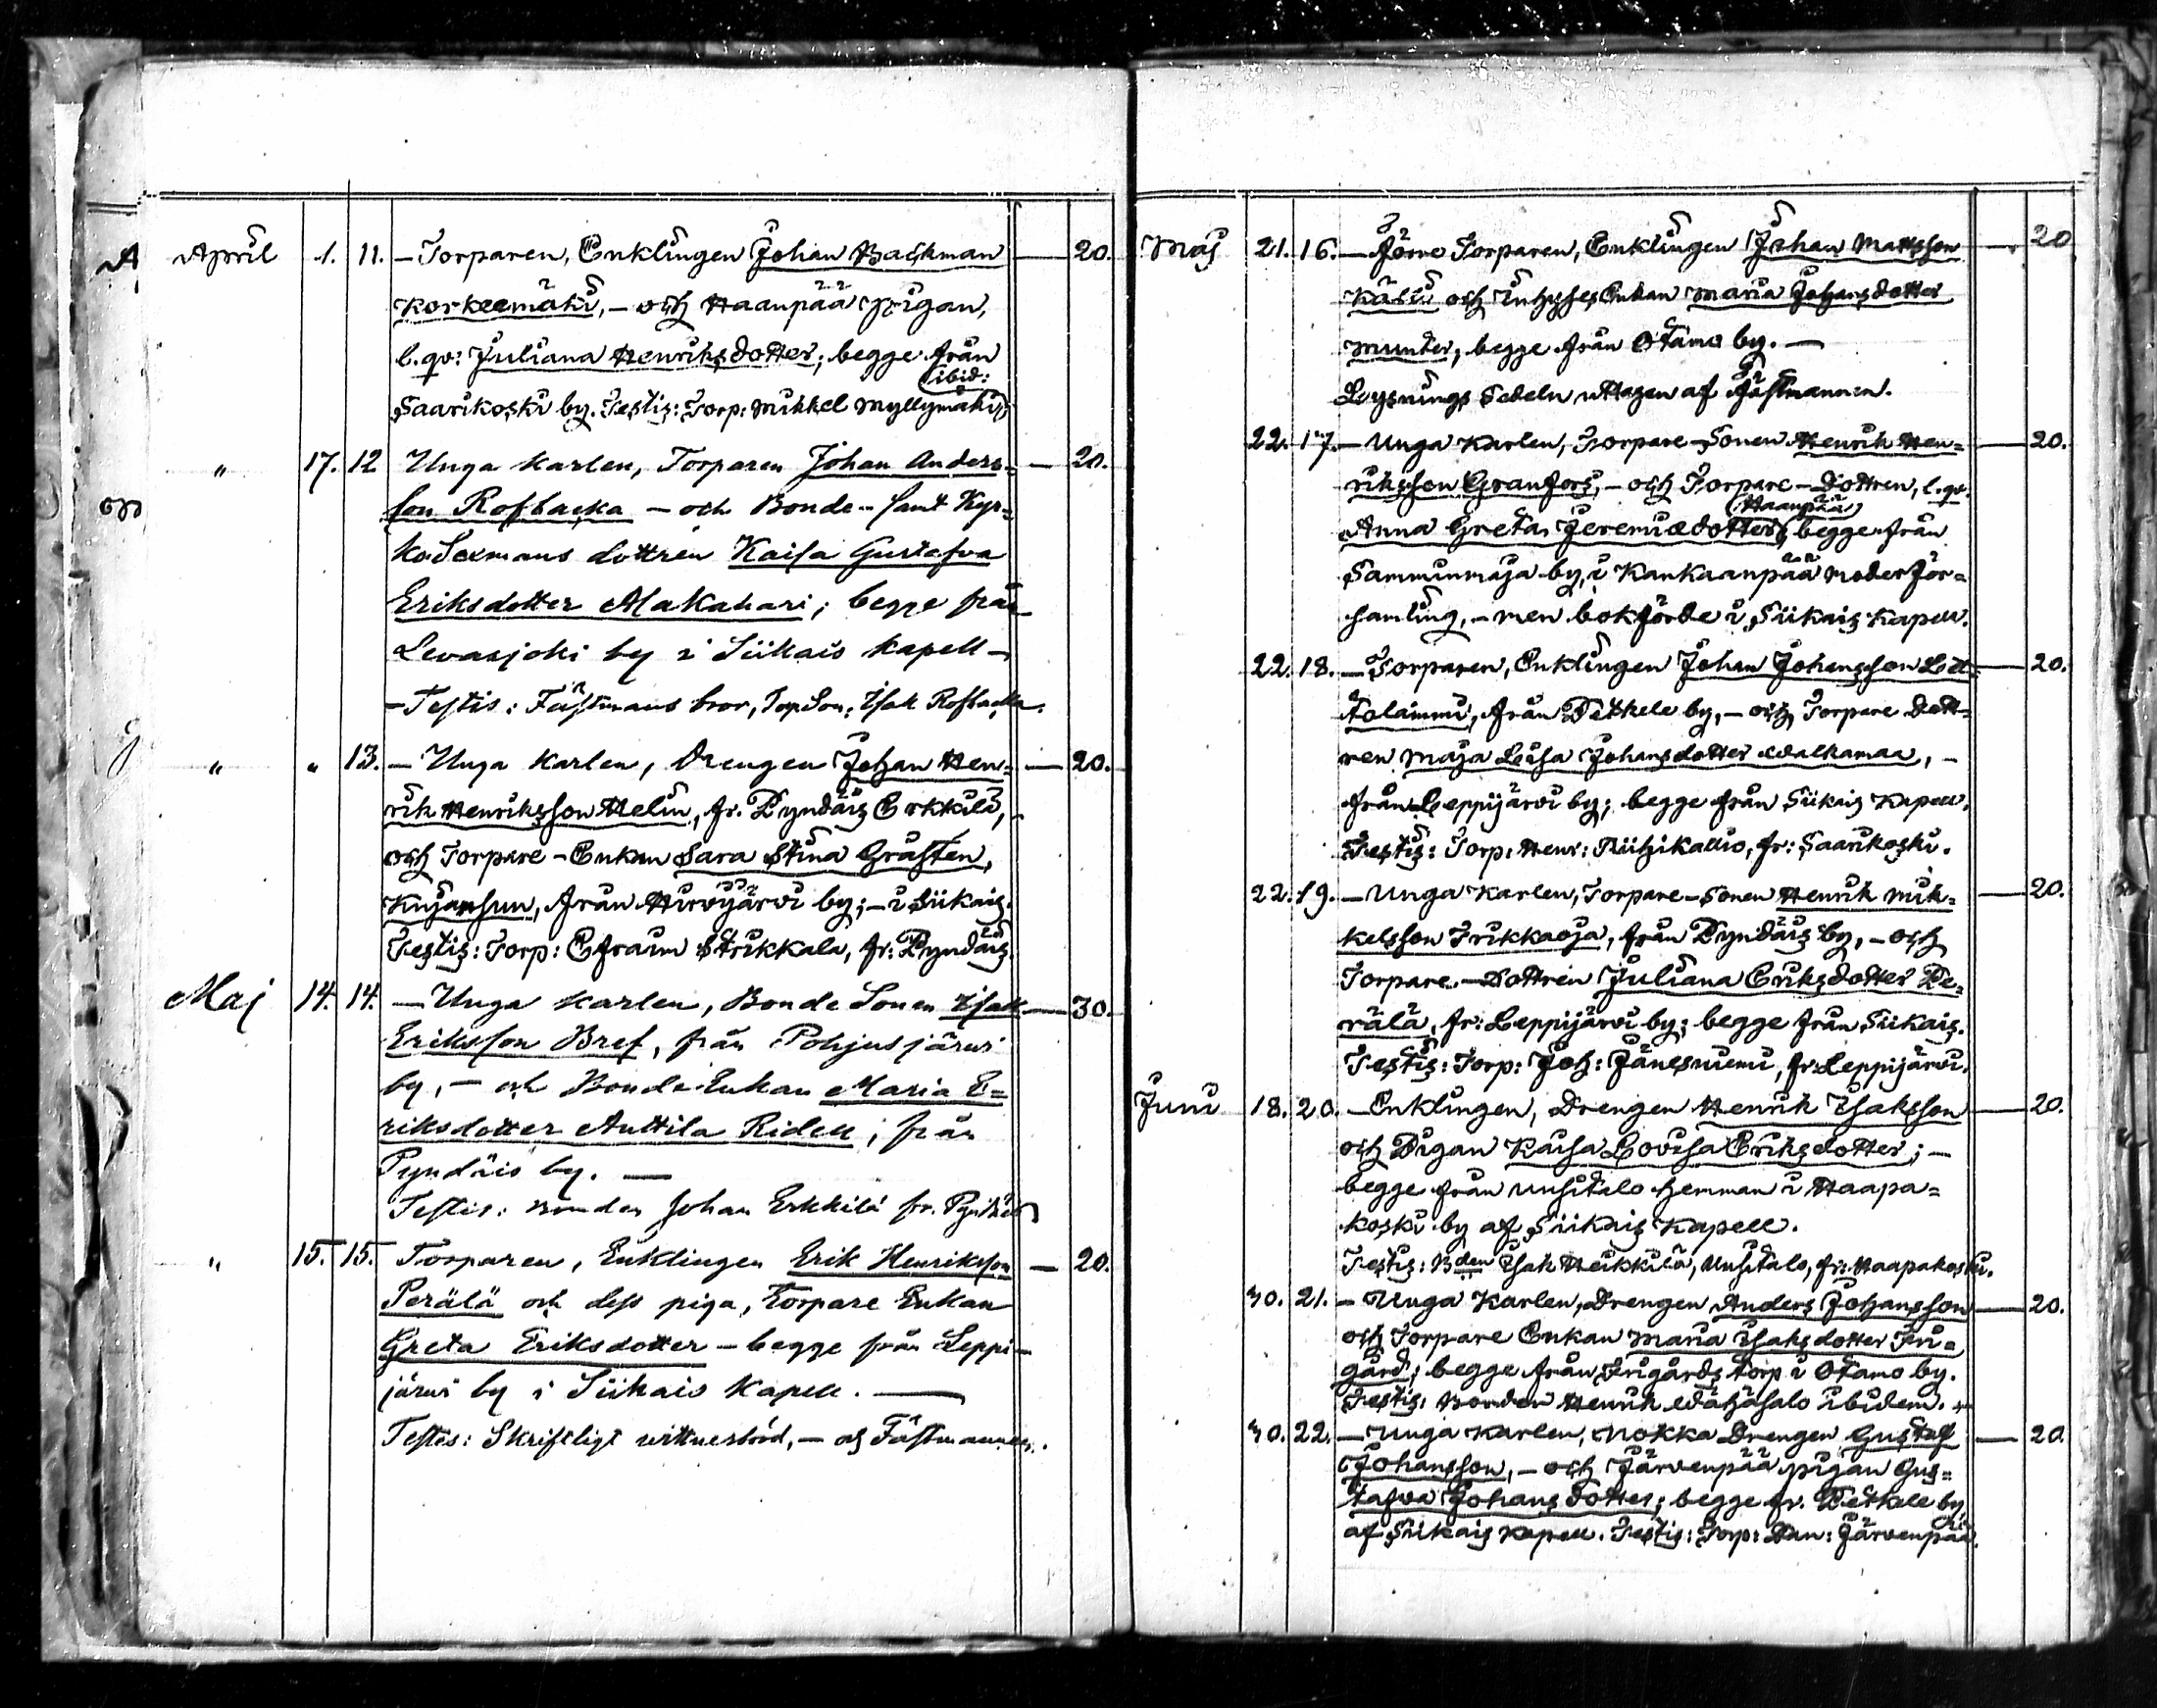 April 1. 11. – Torparen, Enklingen Johan Backman — 20.
Korkeemäki, – och Haanpää pigan,
l. qv: Juliana Henriksdotter; begge från
(ibid:)
Saarikoski by. Testis: Torp: Mikkel Myllymäki,
" 17. 12 Unga Karlen, Torparen Johan Anders= — 20.
son Rosbacka – och Bonde – samt Kyr=
kosexmans dottren Kaisa Gustafva
Eriksdotter Alakahari; begge från
Levasjoki by i Siikais kapell –
– Testis: Fästmans bror, Torp Son, Isak Rosbacka.
" " 13. – Unga Karlen, Drengen Johan Hen= — 20.
rik Henriksson Helin, fr. Pyndäis Erkkilä,
och Torpare – Enkan Sara Stina Gråsten,
Kujansun, från Hirvijärvi by; – i Siikais.
Testis: Torp: Efraim Strikkala, fr: Pyndäis.
Maj 14. 14. – Unga Karlen, Bonde Sonen Isak — 30.
Eriksson Bref, från Pohjusjärvi
by, – och Bonde Enkan Maria E=
riksdotter Anttila Ridell; från
Pyndäis by. —
Testis: Bonden Johan Erkkilä fr. Pyndäis
" 15. 15. Torparen, Enklingen Erik Henriksson — 20.
Perälä och dess piga, Torpare Enkan
Greta Eriksdotter – begge från Leppi–
järvi by i Siikais Kapell. —
Testis: Skriftligt vittnesbörd, – af Fästmannen.
Maj 21. 16. – Förre Torparen, Enklingen Johan Mattsson — 20
och Inhyses Enkan Maria Johansdotter
Munter, begge från Otamo by. —
Lysnings Sedeln uttagen af Fästmannen.
22. 17. – Unga Karlen, Torpare – Sonen Henrik Hen= — 20.
riksson Granfors, – och Torpare – Dottren, l. qv.
(Haanpää)
Anna Greta Jeremiædotter, begge från
Samminmaja by, i Kankaanpää moderför=
samling, – men bokförde i Siikais Kapell.
22. 18. – Torparen, Enklingen Johan Johansson Let= — 20.
tolammi, från Tetkele by, – och Torpare Dott=
ren Maja Lisa Johansdotter Walkamaa, –
från Leppijärvi by; begge från Siikais Kapell.
Testis: Torp: Henr: Riihikallio, fr: Saarikoski.
22. 19. – Unga Karlen, Torpare – Sonen Henrik Mik= — 20.
kelsson Trikkaoja, från Pyndäis by, – och
Torpare – Dottren Juliana Eriksdotter Pe=
rälä, fr: Leppijärvi by; begge från Siikais.
Testis: Torp: Joh: Jänesniemi, fr: Leppijärvi.
Juni 18. 20. – Enklingen, Drengen Henrik Isaksson — 20.
och Pigan Kaisa Lovisa Eriksdotter; –
begge från Uusitalo hemman i Haapa=
koski by af Siikais Kapell.
Testis: Bden Isak Heikkilä, Uusitalo, fr: Haapakoski.
30. 21. – Unga Karlen, Drengen Anders Johansson — 20.
och Torpare Enkan Maria Isaksdotter Fri=
gård; begge från Frigårds torp i Otamo by.
Testis: Bonden Henrik Wähäsalo ibidem.
30. 22. – Unga Karlen, Nokka Drengen Gustaf — 20.
Johansson, – och Järvenpää pigan Gus=
tafva Johansdotter; begge fr. Tetkele by
af Siikais Kapell. Testis: Torp: Dan: Järvenpää.